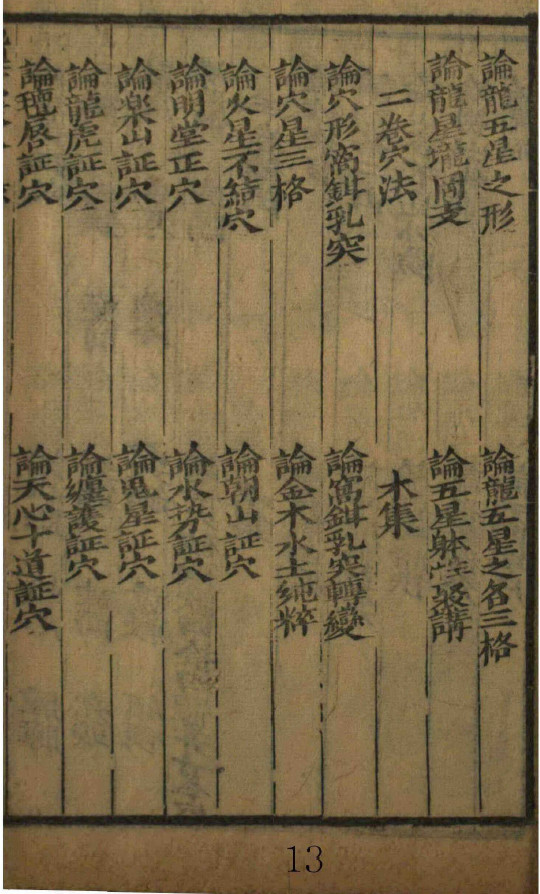 論龍五星之形
論龍五星之名三格
論龍星壠岡支
論五星躰性發講
二卷穴法
木集
論穴形窩鉗乳突
論窩鉗乳突轉變
論穴星三格
論金木水土純粹
論火星不結穴
論朝山証穴
論明堂正穴
論水势証穴
論楽山証穴
論鬼星証穴
論龍虎証穴
論纏護証穴
論氊唇証穴
論天心十道証穴
13